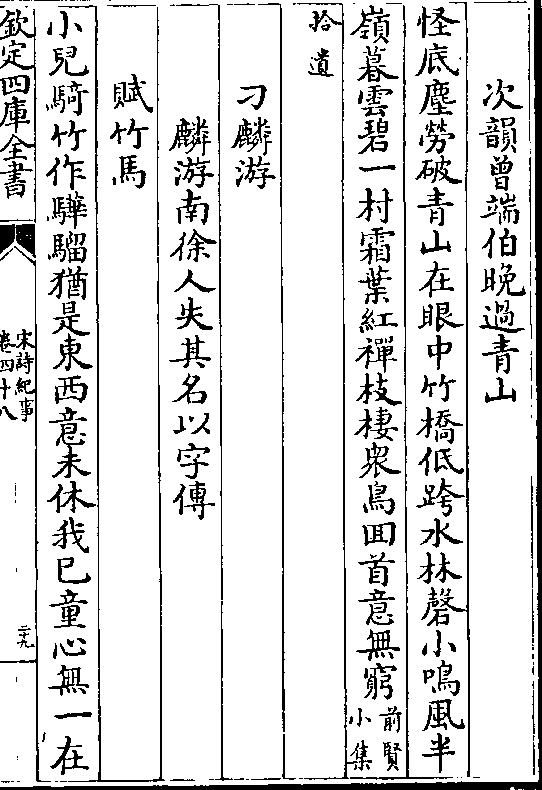 次韻曾端伯晚過青山
怪底塵勞破青山在眼中竹橋低跨水林磬小鳴風半
嶺暮雲碧一村霜葉紅禪枝棲衆鳥囬首意無窮前賢
小集
拾遺
刁麟游
麟游南徐人失其名以字傳
賦竹馬
小兒騎竹作驊騮猶是東西意未休我已童心無一在
欽定四庫全書
宋詩紀事
卷四十八
二十九